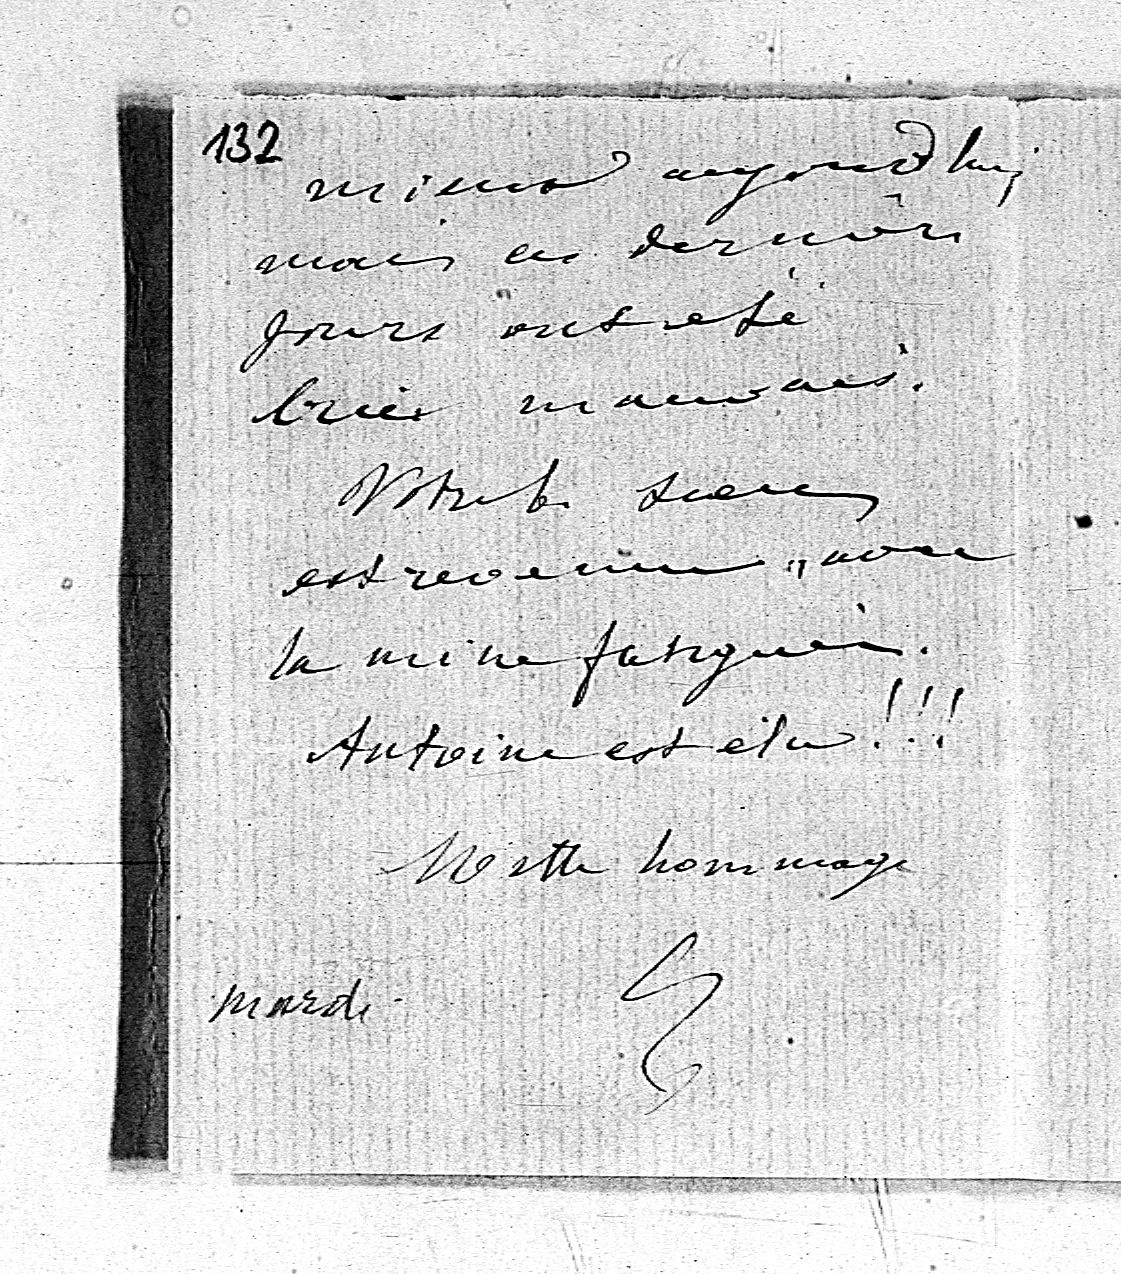 132
mieux aujourd'hui
mais ces derniers
jours ont été
bien mauvais.
Votre soeur
est revenue, avec
la mine fatiguée.
Antoine est élu !!!
Mille hommages
mardi